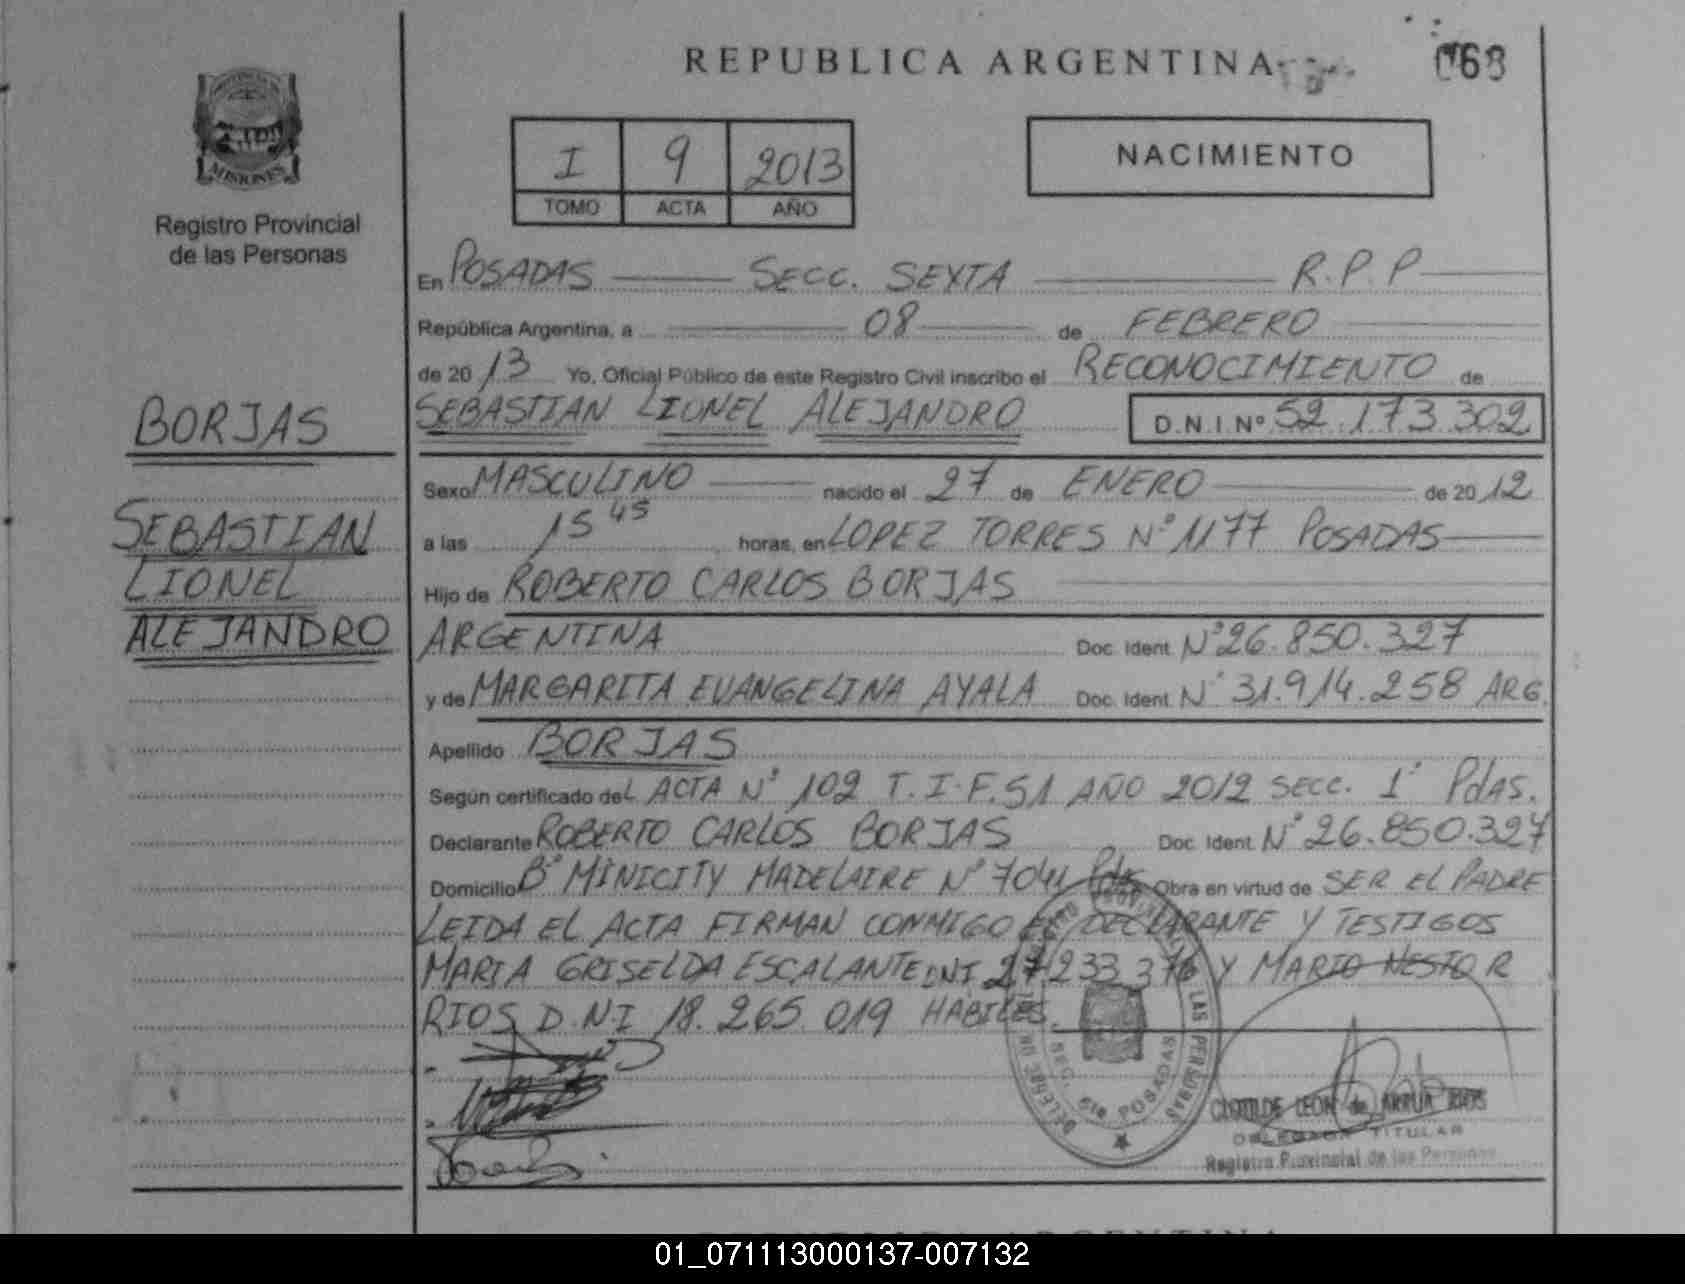 REPUBLICA ARGENTINA
068
MISIONES
Registro Provincial
de las Personas
I 9 2013
TOMO ACTA AÑO
NACIMIENTO
En POSADAS SECC. SEXTA R.P.P
República Argentina, a 08 de FEBRERO
de 2013 Yo, Oficial Público de este Registro Civil inscribo el RECONOCIMIENTO de
SEBASTIAN LIONEL ALEJANDRO D.N.I.Nº 52.173.302
BORJAS
SEBASTIAN
LIONEL
ALEJANDRO
Sexo MASCULINO nacido el 27 de ENERO de 2012
a las 15 45 horas, en LOPEZ TORRES Nº 1177 POSADAS
Hijo de ROBERTO CARLOS BORJAS
ARGENTINA Doc. Ident. Nº 26.850.327
y de MARGARITA EVANGELINA AYALA Doc. Ident. Nº 31.914.258 ARG.
Apellido BORJAS
Según certificado del ACTA Nº 102 T. I. F. 51 AÑO 2012 SECC. 1ª Pdas.
Declarante ROBERTO CARLOS BORJAS Doc. Ident. Nº 26.850.327
Domicilio Bº MINICITY MADELAIRE Nº 7044 Pdas Obra en virtud de SER EL PADRE
LEIDA EL ACTA FIRMAN CONMIGO EL DECLARANTE Y TESTIGOS
MARIA GRISELDA ESCALANTE DNI 27.233.376 Y MARIO NESTOR
RIOS D.NI 18.265.019 HABILES.
SEC. 6ta POSADAS
CLOTILDE LEON de ARRUA RIOS
DELEGADA TITULAR
Registro Provincial de las Personas
01_071113000137-007132